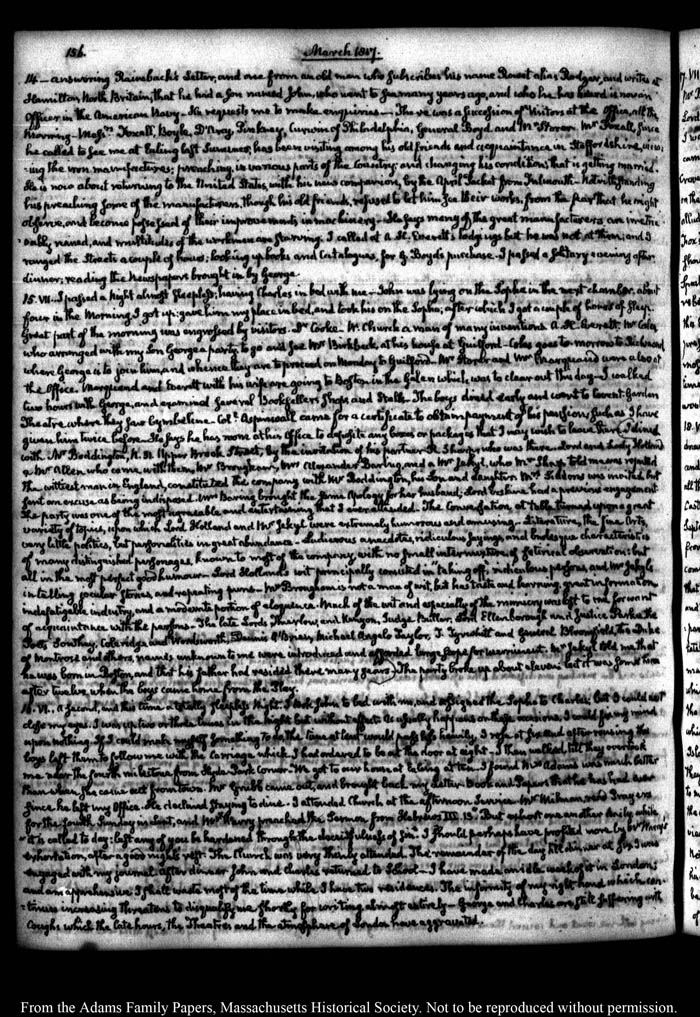 156.
March 1817.
14 — answering Raineback's Letter, and one from an old man who subscribes his name Rowet alias Rodger, and writes at
Hamilton North Britain, that he had a Son named John, who went to Sea many years ago, and who he has heard is now an
Officer in the American Navy. He requests me to make enquiries — There was a succession of Visitors at the Office, all the
Morning. Foxall, Boyle, D'Arcy, Pinkney, Curwin of Philadelphia, General Boyd, and Mr Storrow. Mr Foxall, since
he called to see me at Ealing last Summer, has been visiting among his old friends and acquaintance in Staffordshire, view-
ing the iron manufactures; preaching, in various parts of the Country; and changing his condition; that is getting married.
He is now about returning to the United States, with his new companion, by the April Packet from Falmouth. Notwithstanding
his preaching some of the manufacturers, though his old friends, refused to let him see their works, from the fear that he might
observe, and become possessed of their improvements in machinery — He says many of the great manufacturers are irretrie-
vably ruined, and multitudes of the workmen are starving. I called at A. H. Everett's lodgings but he was not at home; and I
ranged the Streets a couple of hours; looking up books and Catalogues, for Boyd's purchase. I passed a solitary evening after
dinner; reading the Newspapers brought in by George.
15. VII. I passed a Night almost sleepless; having Charles in bed with me — John was lying on the Sopha in the next chamber, about
four in the Morning I got up; gave him my place in bed, and took his on the Sopha; after which I got a couple of hours of sleep.
Great part of the morning was engrossed by visitors. Dr Cooke — W. Church a man of many inventions A. H. Everett. Mr Coles,
who arranged with my Son George a party to go and see Mr Birkbeck, at his house at Guilford. Coles goes to-morrow to Richmond
where George is to join him, and whence they are to proceed on Monday to Guilford. Mr Storer and Mr Marquand were also at
the Office. Marquand and Everett with his wife are going to Boston in the Galen which was to clear out this day — I walked
two hours with George, and examined several Booksellers Shops and Stalls. The boys dined early and went to Covent-Garden
Theatre where they saw Cymbeline. Colo. Aspinwall came for a certificate to obtain payment of his pension, such as I have
given him twice before. He says he has room at his Office to deposite any boxes or packages that I may wish to leave. I dined
with Mr Boddington, N. 31 Upper Brook Street, by the invitation of his partner R. Sharp, who was there. Lord and Lady Holland
& Mr Allen who came with them, Mr Brougham, Mr Alexander Baring, and a Mr Jekyl, who Mr Sharp told me was reputed
the wittiest man in England, constituted the company with Mr Boddington, his Son and daughter. Mrs Siddons was invited but
sent an excuse as being indisposed. Mrs Baring brought the same Apology for her husband; Lord Erskine had a previous engagement
The party was one of the most agreeable and entertaining that I ever attended. The Conversation at table turned upon a great
variety of topics, upon which Lord Holland and Mr Jekyl were extremely humorous and amusing. Literature, the fine Arts,
very little politics, but personalities in great abundance. Ludicrous anecdotes, ridiculous sayings, and burlesque characteristics
of many distinguished personages, known to most of the company, with no small intermixture of satirical observations; but
all in the most perfect good humour — Lord Holland's wit principally consisted in taking off, ridiculous persons, and Mr Jekyl's
in telling jocular stories, and repeating puns — Mr Brougham is not a man of wit, but has taste and learning, great information
indefatigable industry, and a moderate portion of eloquence. Much of the wit and especially of the mimicry was lost to me for want
of acquaintance with the persons. The late Lords Thurlow, and Kenyon, Judge Buller, Lord Ellenborough and Justice Park, the
Poets, Southey, Coleridge and Wordsworth, Dennis O'Bryen, Michael Angelo Taylor, J. Tyrwhitt and General Bloomfield, the Duke
of Montrose and others, names unknown to me were introduced and afforded large scope for merriment. Mr Jekyl told me that
he was born in Boston, and that his father had resided there many years. The party broke up about eleven but it was some time
after twelve when the boys came home from the Play.
16. VI. A second, and this time a totally sleepless Night. I took John to bed with me, and assigned the Sopha to Charles, but I could not
close my eyes. I was up two or three times in the night but without effect. As usually happens on these occasions, I could fix my mind
upon nothing. If I could make myself something to do the time at least would pass less heavily. I rose at six and after rousing the
boys left them to follow me with the carriage which I had ordered to be at the door at eight. I then walked till they overtook
me near the fourth milestone from Hyde Park Corner. We got to our home at Ealing at ten. I found Mrs Adams was much better
than when she came out from town. Mr Grubb came out, and brought back my Letter-Book and Papers that he has had ever
since he left my Office. He declined staying to dine. I attended Church at the afternoon Service. Mr Wilmam read Prayers
for the fourth Sunday in Lent, and preached the Sermon from Hebrews III. 13. But exhort one another daily while
it is called to day: lest any of you be hardened through the deceitfulness of sin. I should perhaps have profited more by his
exhortation, after a good night's rest. The Church was very thinly attended. The remainder of the day till dinner at six I was
engaged with my journal. After dinner John and Charles returned to School. I have made an idle week of it in London;
and am apprehensive I shall waste most of the time while I have two residences. The infirmity of my right hand which con-
tinues increasing threatens to disqualify me shortly for writing almost entirely. George and Charles are still suffering with
Coughs which the late hours, the Theatres and the atmosphere of London have aggravated.
From the Adams Family Papers, Massachusetts Historical Society. Not to be reproduced without permission.